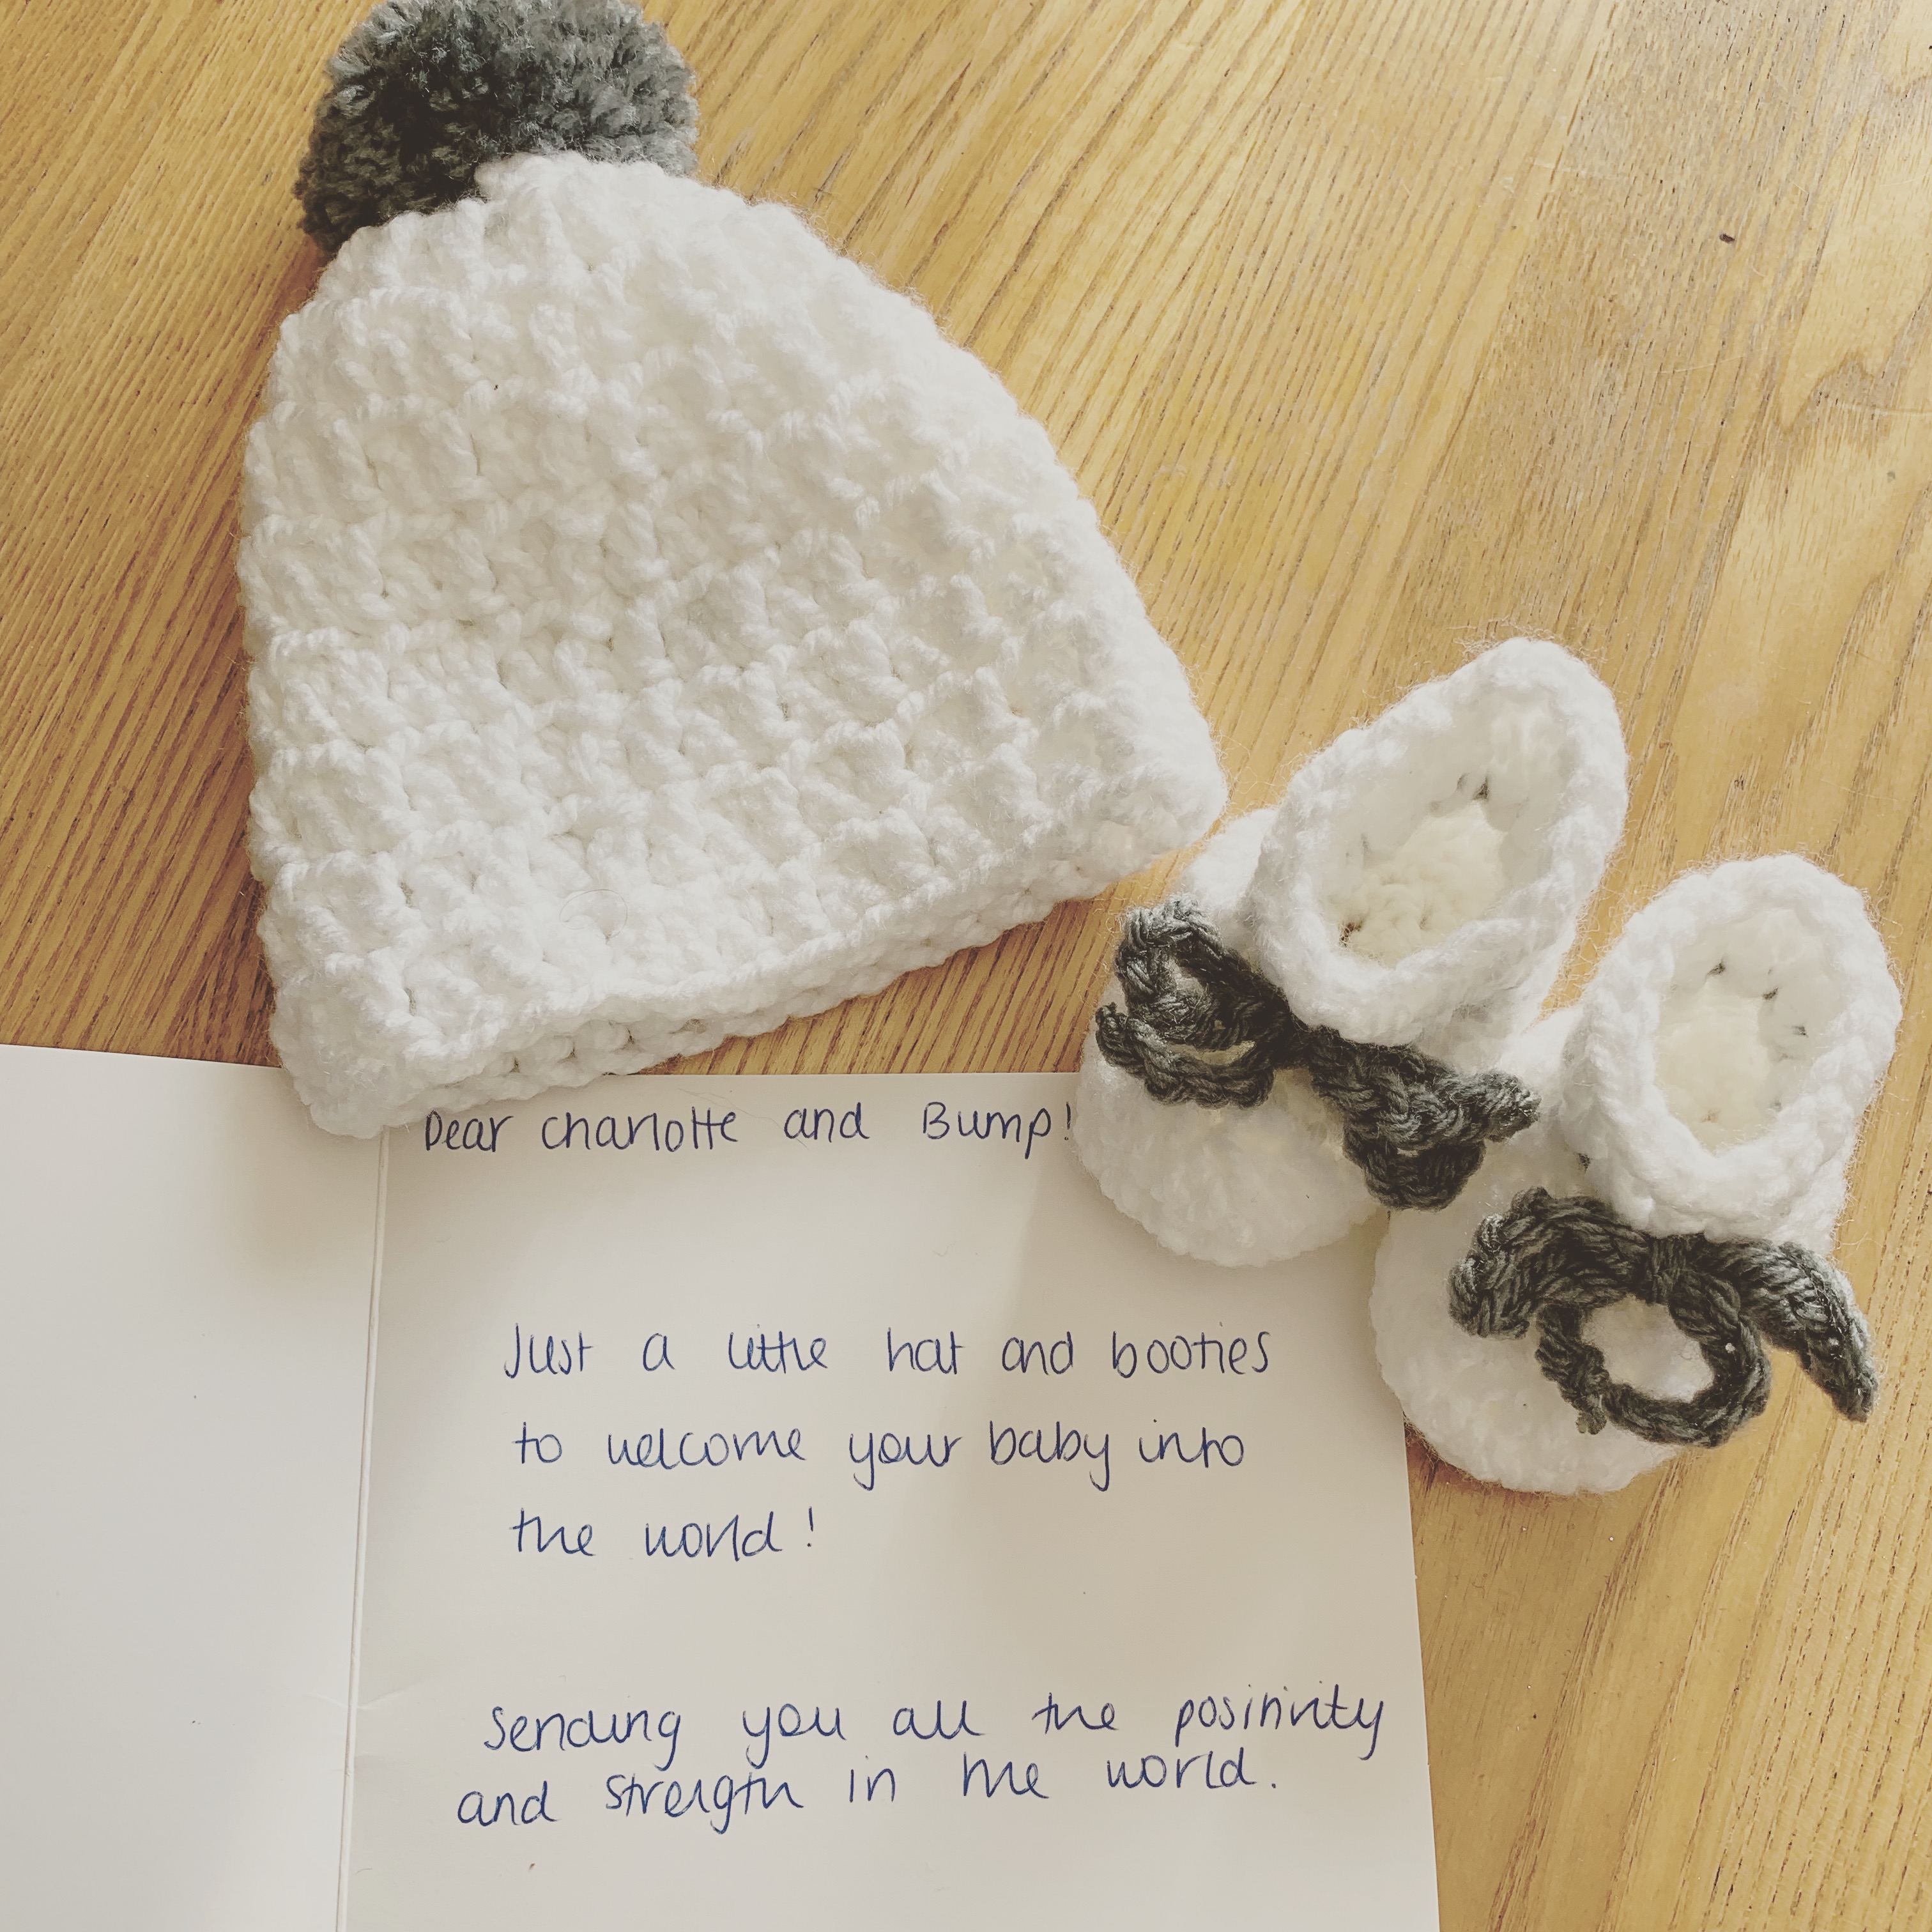 Dear Charlotte and Bump!
Just a little hat and booties
to welcome your baby into
the world!
Sending you all the positivity
and strength in the world.